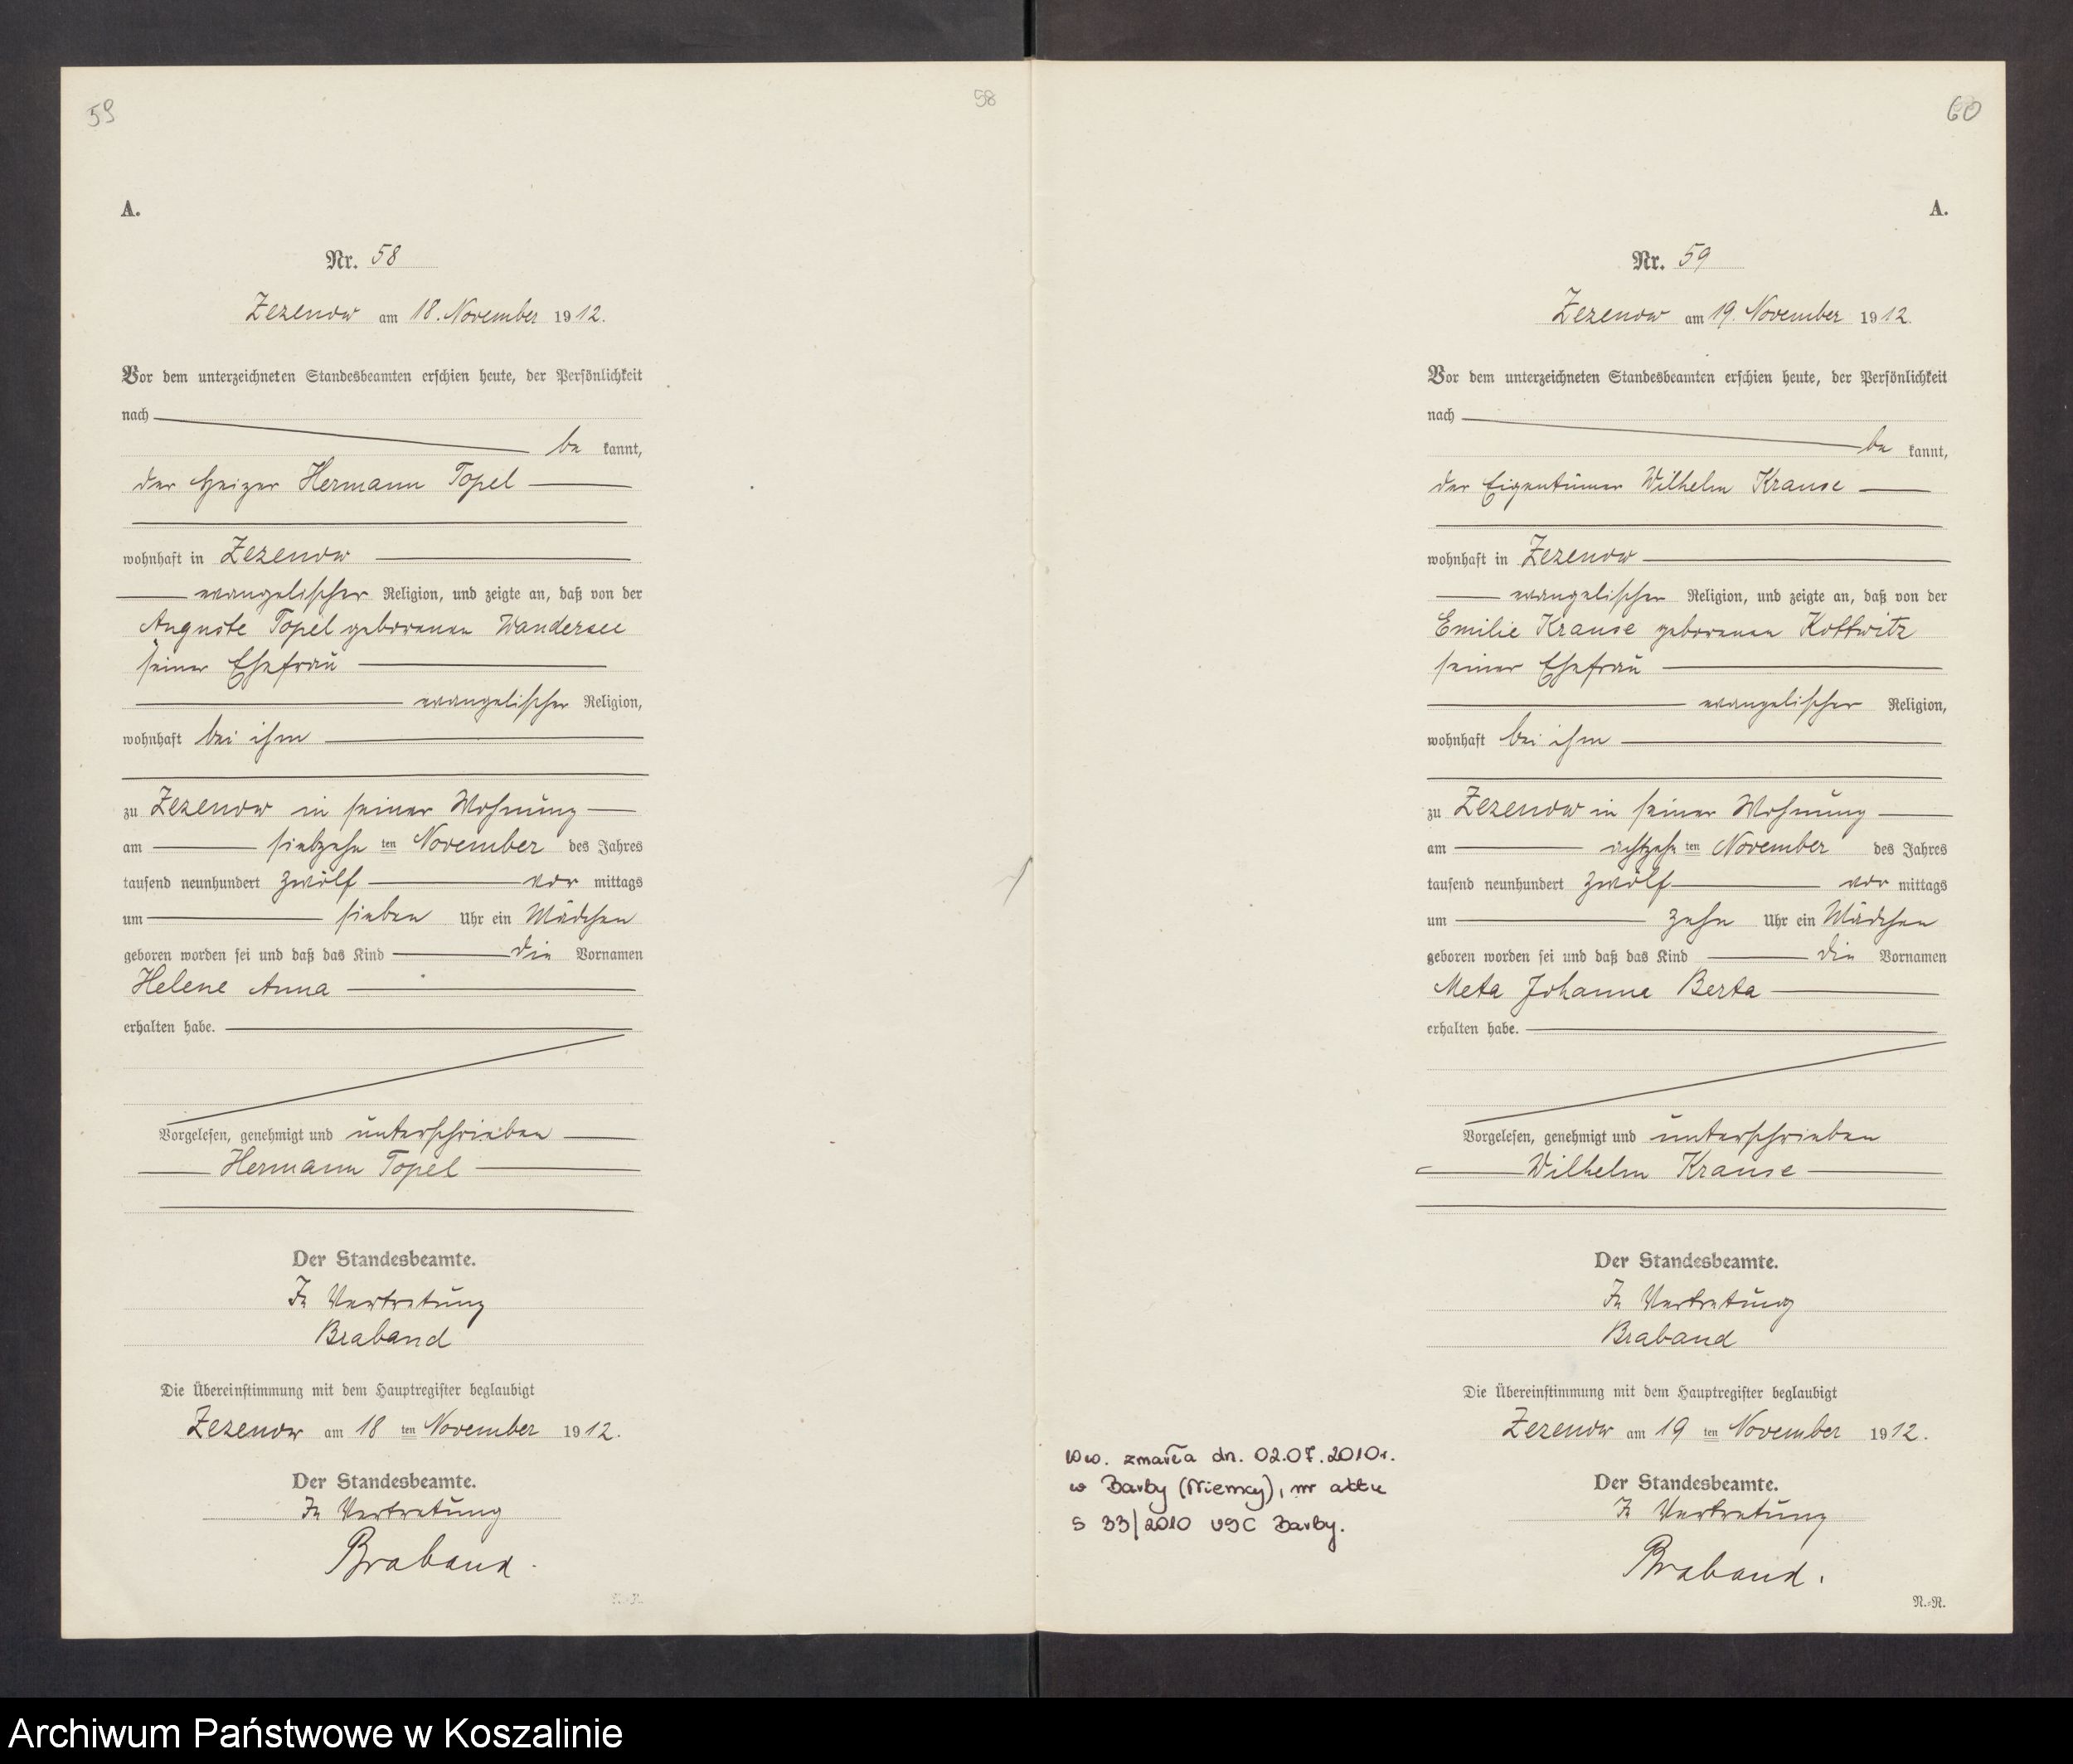 59
58
A.
Nr. 58
Zezenow am 18. November 1912.
Vor dem unterzeichneten Standesbeamten erschien heute, der Persönlichkeit
nach
be kannt,
der Heizer Hermann Topel
wohnhaft in Zezenow
evangelischer Religion, und zeigte an, daß von der
Auguste Topel geborenen Wandersee
seiner Ehefrau
evangelischer Religion,
wohnhaft bei ihm
zu Zezenow in seiner Wohnung
am siebzehn ten November des Jahres
tausend neunhundert zwölf vor mittags
um sieben Uhr ein Mädchen
geboren worden sei und daß das Kind die Vornamen
Helene Anna
erhalten habe.
Vorgelesen, genehmigt und unterschrieben
Hermann Topel
Der Standesbeamte.
In Vertretung
Braband
Die Übereinstimmung mit dem Hauptregister beglaubigt
Zezenow am 18 ten November 1912.
Der Standesbeamte.
In Vertretung
Braband.
60
A.
Nr. 59
Zezenow am 19. November 1912.
Vor dem unterzeichneten Standesbeamten erschien heute, der Persönlichkeit
nach
be kannt,
der Eigentümer Wilhelm Krause
wohnhaft in Zezenow
evangelischer Religion, und zeigte an, daß von der
Emilie Krause geborenen Kottwitz
seiner Ehefrau
evangelischer Religion,
wohnhaft bei ihm
zu Zezenow in seiner Wohnung
am achtzehn ten November des Jahres
tausend neunhundert zwölf vor mittags
um zehn Uhr ein Mädchen
geboren worden sei und daß das Kind die Vornamen
Meta Johanna Berta
erhalten habe.
Vorgelesen, genehmigt und unterschrieben
Wilhelm Krause
Der Standesbeamte.
In Vertretung
Braband
Die Übereinstimmung mit dem Hauptregister beglaubigt
Zezenow am 19 ten November 1912.
Der Standesbeamte.
In Vertretung
Braband.
N.-R.
Ww. zmarła dn. 02.07.2010r.
w Barby (Niemcy), nr aktu
S 33/2010 USC Barby.
Archiwum Państwowe w Koszalinie